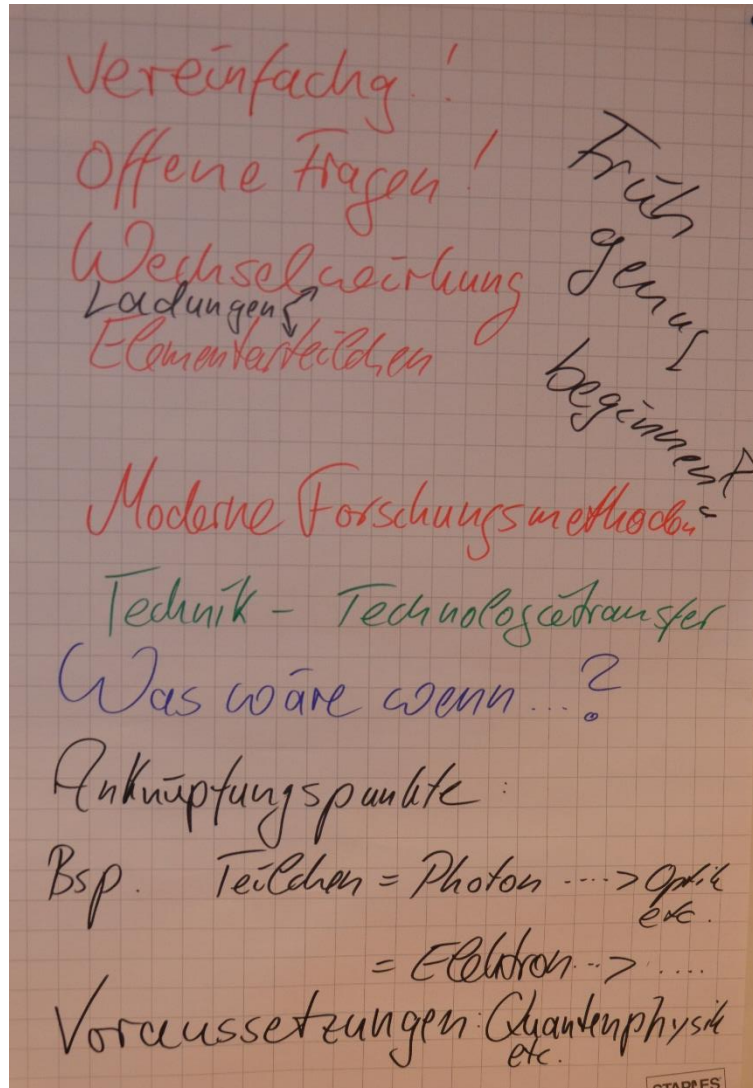 Vereinfachg.!
Offene Fragen!
Wechselwirkung
Ladungen
Elementarteilchen
Früh
genug
beginnen!
Moderne Forschungsmethoden
Technik - Technologietransfer
Was wäre wenn...?
Anknüpfungspunkte:
Bsp. Teilchen = Photon ----> Optik
etc.
= Elektron --> ....
Voraussetzungen: Quantenphysik
etc.
STAPLES